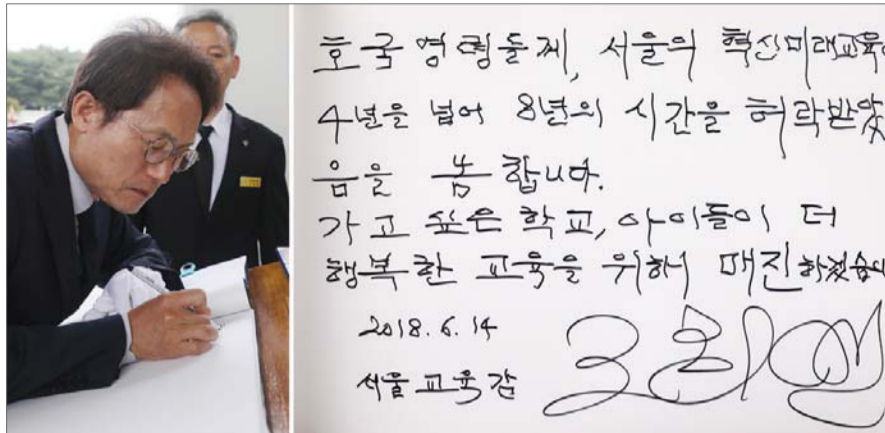 호국영령들께, 서울의 혁신미래교육이
4년을 넘어 8년의 시간을 허락받았
음을 봉합니다.
가고 싶은 학교, 아이들이 더
행복한 교육을 위해서 매진하겠습니다
2018. 6. 14
서울교육감 조희연